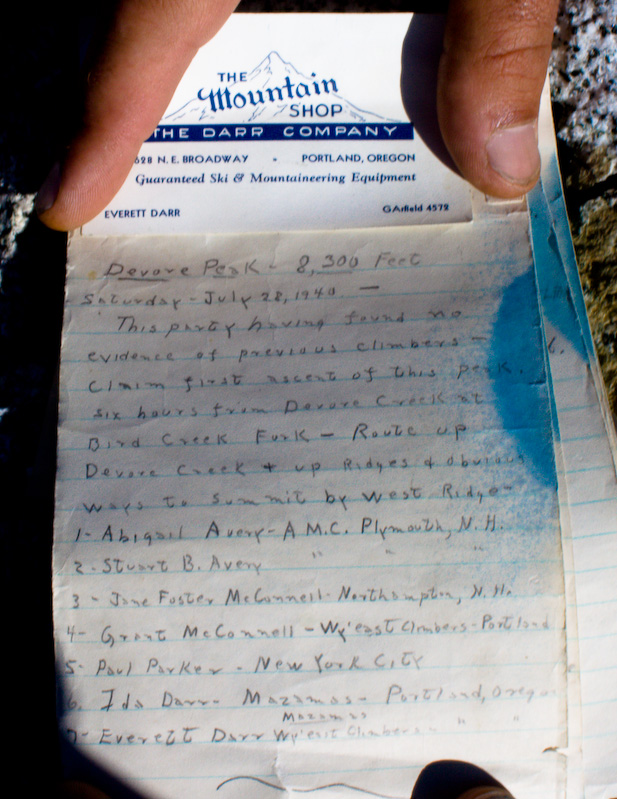 THE
Mountain
SHOP
THE DARR COMPANY
628 N. E. BROADWAY - PORTLAND, OREGON
Guaranteed Ski & Mountaineering Equipment
EVERETT DARR GArfield 4572
Devore Peak - 8,300 Feet
Saturday - July 28, 1940 —
This party having found no
evidence of previous climbers -
Claim first ascent of this peak.
six hours from Devore Creek at
Bird Creek Fork - Route up
Devore Creek & up Ridges & obvious
ways to summit by West Ridge -
1- Abigail Avery - A.M.C. Plymouth, N.H.
2- Stuart B. Avery " " "
3 - Jane Foster McConnell - Northampton, N.H.
4- Grant McConnell - Wy'east Climbers - Portland
5- Paul Parker - New York City
6. Ida Darr - Mazamas - Portland, Oregon
Mazamas
7- Everett Darr Wy'east Climbers - " "